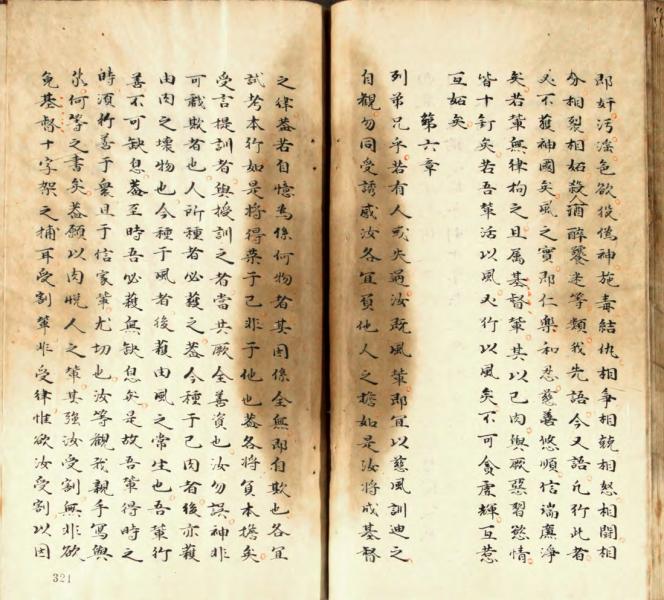 即奸汚淫色欲役偽神施毒結仇相争相競相怒相鬪相
分相裂相妬殺人酒醉饕迷等類我先語今又語凢行此者
必不獲神國矣風之實即仁樂和忍慈善悠順信端廉淨
矣若輩無律拘之且属基督輩其以己肉與厥惡習慾情
皆十釘矣若吾輩活以風又行以風矣不可貪虛輝互惹
互妬矣
第六章
列弟兄乎若有人或失過汝既風輩即宜以慈風訓迪之
自觀勿同受誘感汝各宜負他人之擔如是汝将成基督
之律葢若自憶為係何物者其因係全無即自欺也各宜
試考本行如是将得榮于己非于他也葢各将負本擔矣
受言提訓者與授訓之者當共厥全善資也汝勿誤神非
可戲欺者也人所種者必獲之葢今種于己肉者後亦獲
由肉之壞物也今種于風者後獲由風之常生也吾輩行
善不可缺息葢至時吾必獲無缺息矣是故吾輩得時之
時須行善于衆且于信家輩尤切也汝等觀我親手寫與
汝何等之書矣葢願以肉悅人之輩其強汝受割無非欲
免基督十字架之捕耳受割輩非受律惟欲汝受割以因
321